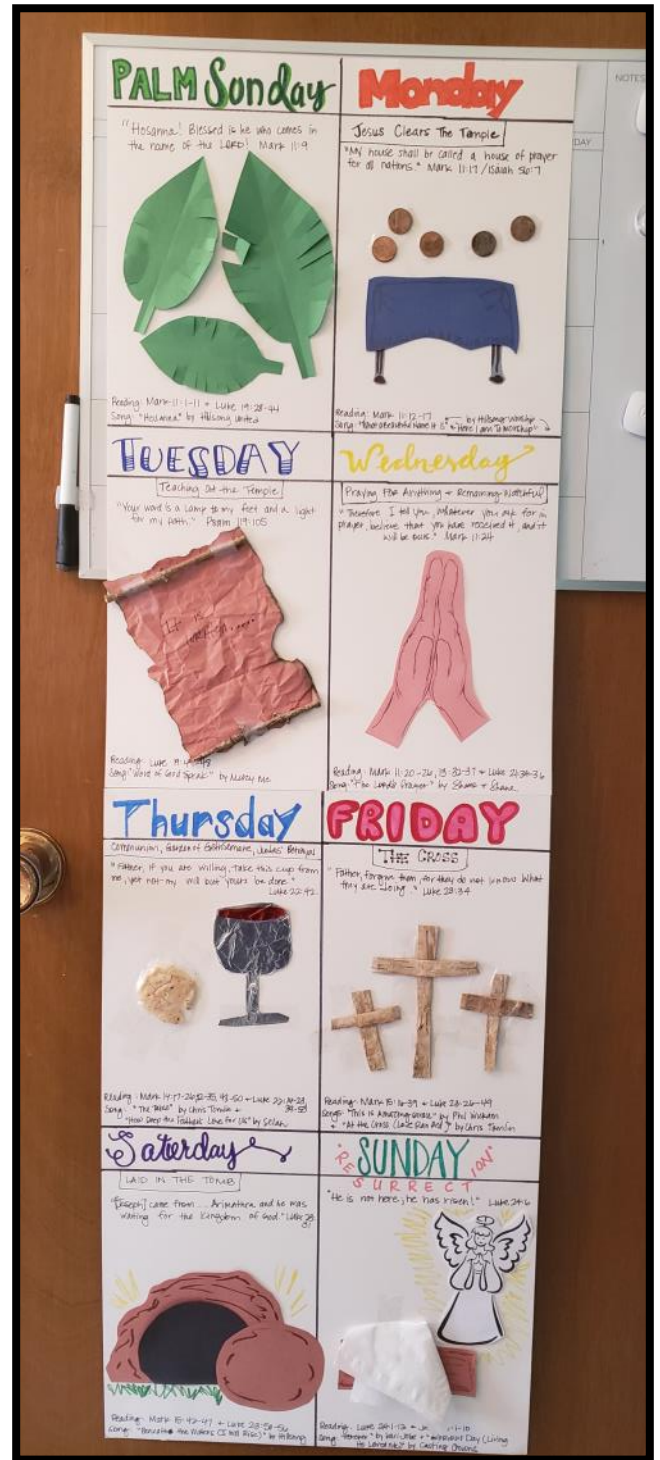 PALM Sunday
"Hosanna! Blessed is he who comes in
the name of the LORD! Mark 11:9
Reading: Mark 11:1-11 + Luke 19:28-44
Song: "Hosanna" by Hillsong United
Monday
Jesus Clears The Temple
"My house shall be called a house of prayer
for all nations." Mark 11:17/Isaiah 56:7
Reading: Mark 11:12-17
Song: "What a Beautiful Name It Is" by Hillsong Worship
"Here I am To Worship"
NOTES
DAY
TUESDAY
Teaching at the Temple
"Your word is a lamp to my feet and a light
for my path." Psalm 119:105
It is
written....
Reading: Luke
Song: "Word of God Speak" by Mercy Me
Wednesday
Praying For Anything + Remaining Watchful
"Therefore I tell you, whatever you ask for in
prayer, believe that you have received it, and it
will be yours." Mark 11:24
Reading: Mark 11:20-26, 13:32-37 + Luke 21:34-36
Song: "The Lord's Prayer" by Shane + Shane
Thursday
Communion, Garden of Gethsemane, Judas' Betrayal
"Father, if you are willing, take this cup from
me, yet not my will but yours be done."
Luke 22:42
Reading: Mark 14:17-26, 32-35, 43-50 + Luke
Song: "The Table" by Chris Tomlin +
"How Deep the Father's Love for Us" by Selah
FRIDAY
THE CROSS
"Father, forgive them, for they do not know what
they are doing." Luke 23:34
Reading: Mark 15:16-39 + Luke 23:26-49
Songs: "This is Amazing Grace" by Phil Wickham
+ "At the Cross (Love Ran Red)" by Chris Tomlin
Saturday
LAID IN THE TOMB
"[Joseph] came from ... Arimathea and he was
waiting for the kingdom of God." Luke 23
Reading: Mark 15:42-47 + Luke 23:50-56
Song: "Beneath the Waters (I Will Rise)" by Hillsong
SUNDAY
RESURRECTION
"He is not here; he has risen!" Luke 24:6
Reading: Luke 24:1-12 +
Song: "Forever" by Kari Jobe + Day (Living
He Loved Me)" by Casting Crowns